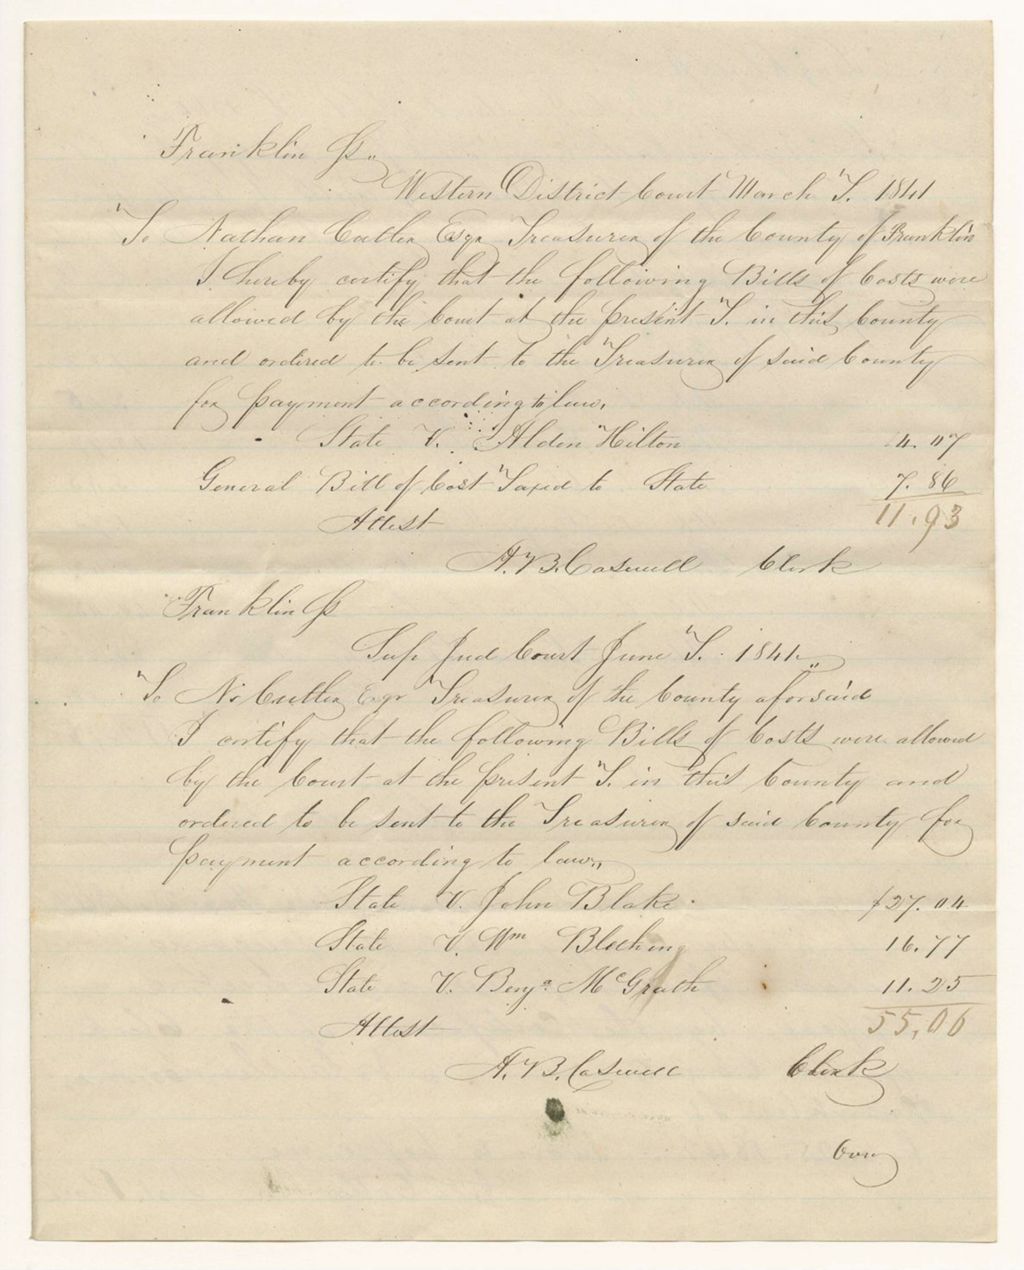 Franklin Ss.
Western District Court March T. 1841
To Nathan Cutler Esqr Treasurer of the County of Franklin
I hereby certify that the following Bills of Costs were
allowed by the Court at the present T. in this County
and ordered to be sent to the Treasurer of said County
for payment according to law.
State V. Alden Hilton 4.07
General Bill of Cost Taxed to State 7.86
11.93
Attest
A. B. Caswell Clerk
Franklin Ss
Sup Jud Court June T. 1841.
To N. Cutler Esqr Treasurer of the County aforsaid
I certify that the following Bills of Costs were allowed
by the Court at the present T. in this County and
ordered to be sent to the Treasurer of said County for
payment according to law,
State V. John Blake $27.04
State V. Wm Blething 16.77
State V. Benja McGrath 11.25
55,06
Attest
A. B. Caswell Clerk
Over